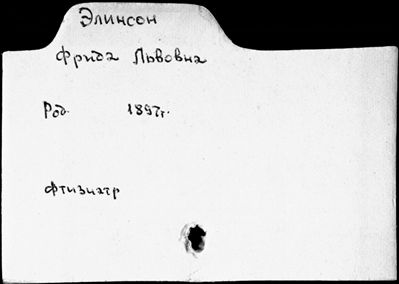 Элинсон
Фрида Львовна
Род. 1897г.
Фтизиатр